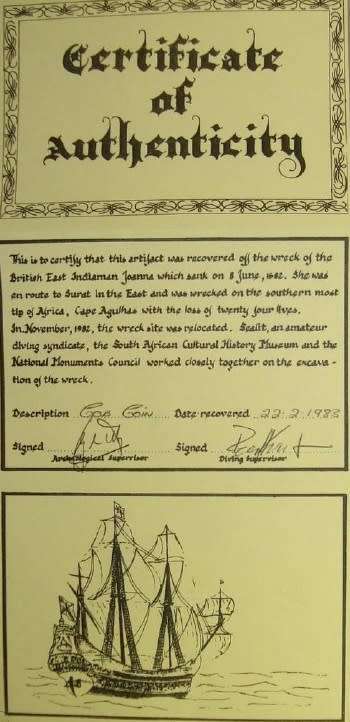 Certificate
of
Authenticity
This is to certify that this artifact was recovered off the wreck of the
British East Indiaman Joanna which sank on 8 June, 1682. She was
en route to Surat in the East and was wrecked on the southern most
tip of Africa, Cape Agulhas with the loss of twenty four lives.
In November, 1982, the wreck site was relocated. Sealit, an amateur
diving syndicate, the South African Cultural History Museum and the
National Monuments Council worked closely together on the excava-
tion of the wreck.
Description Goa Coin Date recovered 22.2.1983
Signed Signed
Archeological Supervisor Diving Supervisor